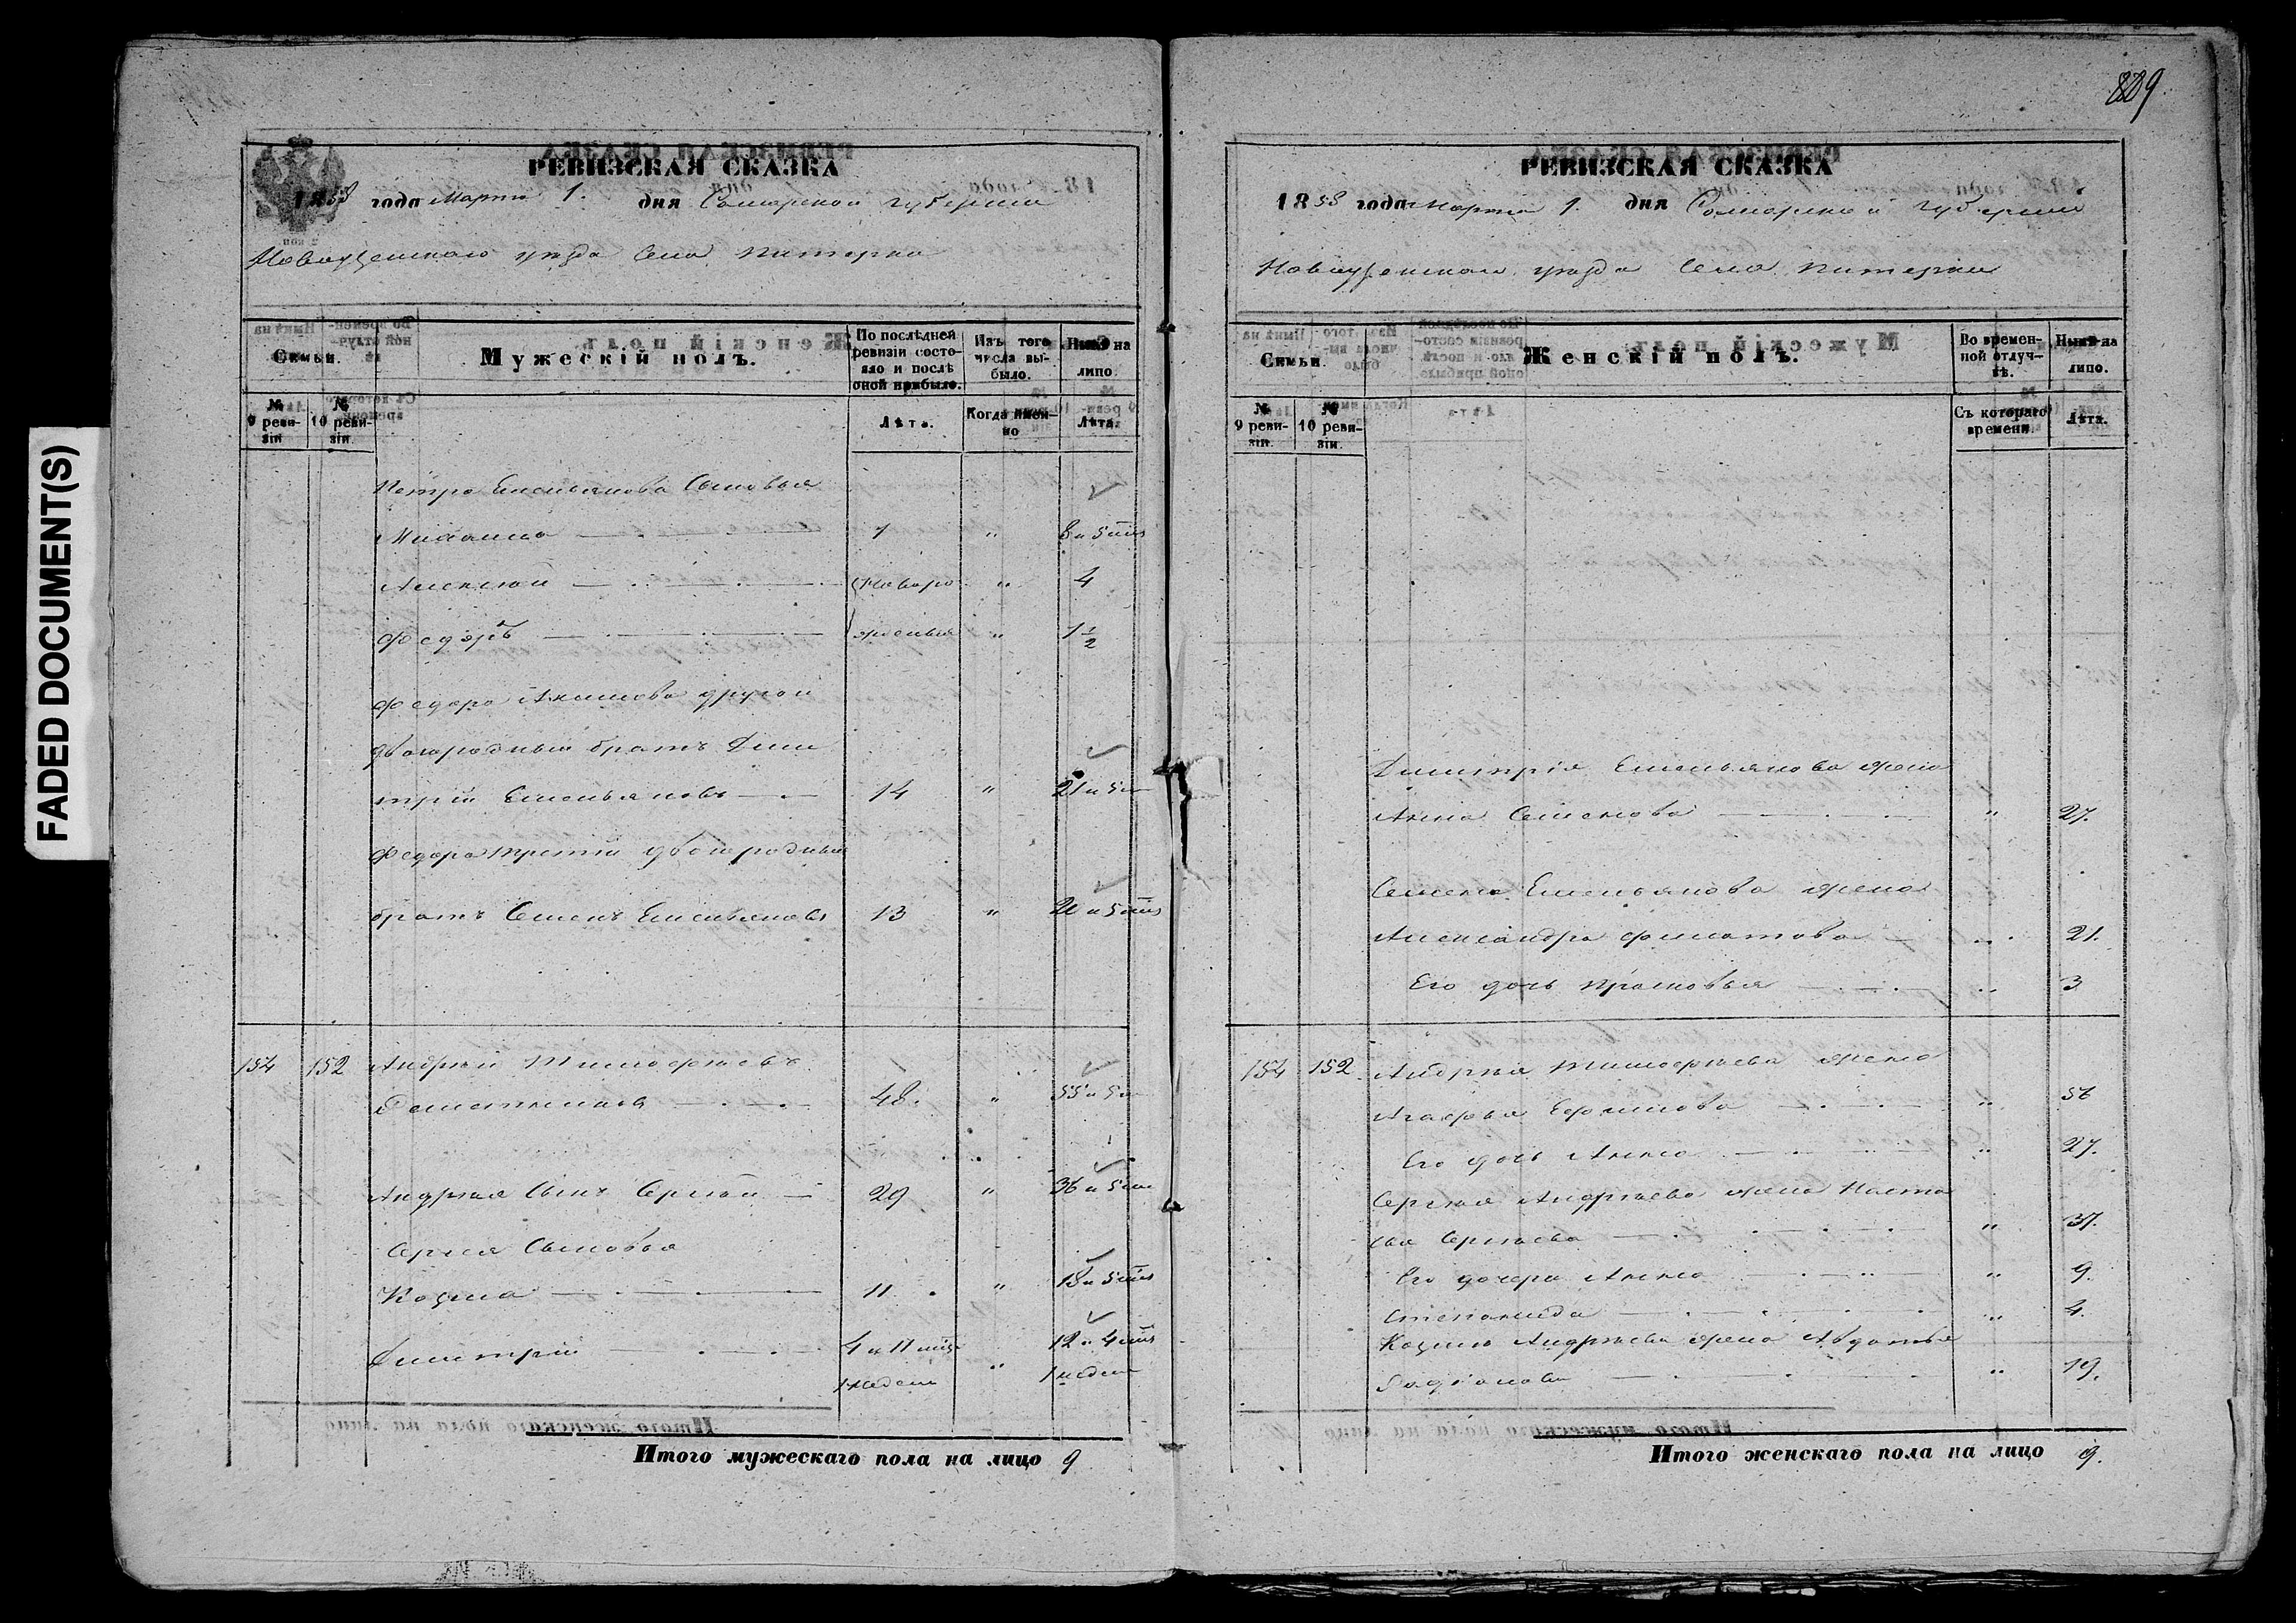 FADED DOCUMENT(S)
РЕВИЗСКАЯ СКАЗКА
1858 года Марта 1. дня Самарской губернии
Новоузенскаго уѣзда Села Питерки
Семьи.
Мужескій полъ.
По послѣдней ревизіи состояло и послѣ оной прибыло.
Изъ того числа выбыло.
Нынѣ на лицо.
№ 9 ревизіи.
№ 10 ревизіи.
Лѣта.
Когда именно
Лѣта.
Петра Емельянова Сыновья
Михайла 1 " 8 и 5 мѣс
Алексѣй новоро " 4
Федоръ жденные " 1 1/2
Федора Акимова другой
двоюродный братъ Дми
трій Емельяновъ 14 " 21 и 5 м
Федора третій двоюродный
братъ Семенъ Емельяновъ 13 " 20 и 5 мѣс
154 152 Андрей Тимофѣевъ
48. " 55 и 5 м
Андрея Сынъ Сергѣй 29 " 36 и 5 мѣс
Сергѣя Сыновья
Козма 11 " 18 и 5 мѣс
Дмитрій 4 и 11 мѣс " 12 и 4 мѣс
1 недели 1 недел
Итого мужескаго пола на лицо 9
829
РЕВИЗСКАЯ СКАЗКА
1858 года Марта 1. дня Самарской губерніи
Новоузенскаго уѣзда Села Питерки
Семьи.
Женскій полъ.
Во временной отлучкѣ.
Нынѣ на лицо.
№ 9 ревизіи.
№ 10 ревизіи.
Съ котораго времени.
Лѣта.
Дмитрія Емельянова жена
Анна Семенова " 27.
Семена Емельянова жена
Александра Филатова " 21.
Его дочь Прасковья " 3
154 152. Андрея Тимофѣева жена
Агафья Ефимова " 56
Его дочь Анна " 27.
Сергѣя Андрѣева жена Наста
сья Сергѣева " 37.
Его дочери Анна " 9.
Степанида " 4.
Козмы Андрѣева жена Авдотья
Радіонова " 19.
Итого женскаго пола на лицо 9.